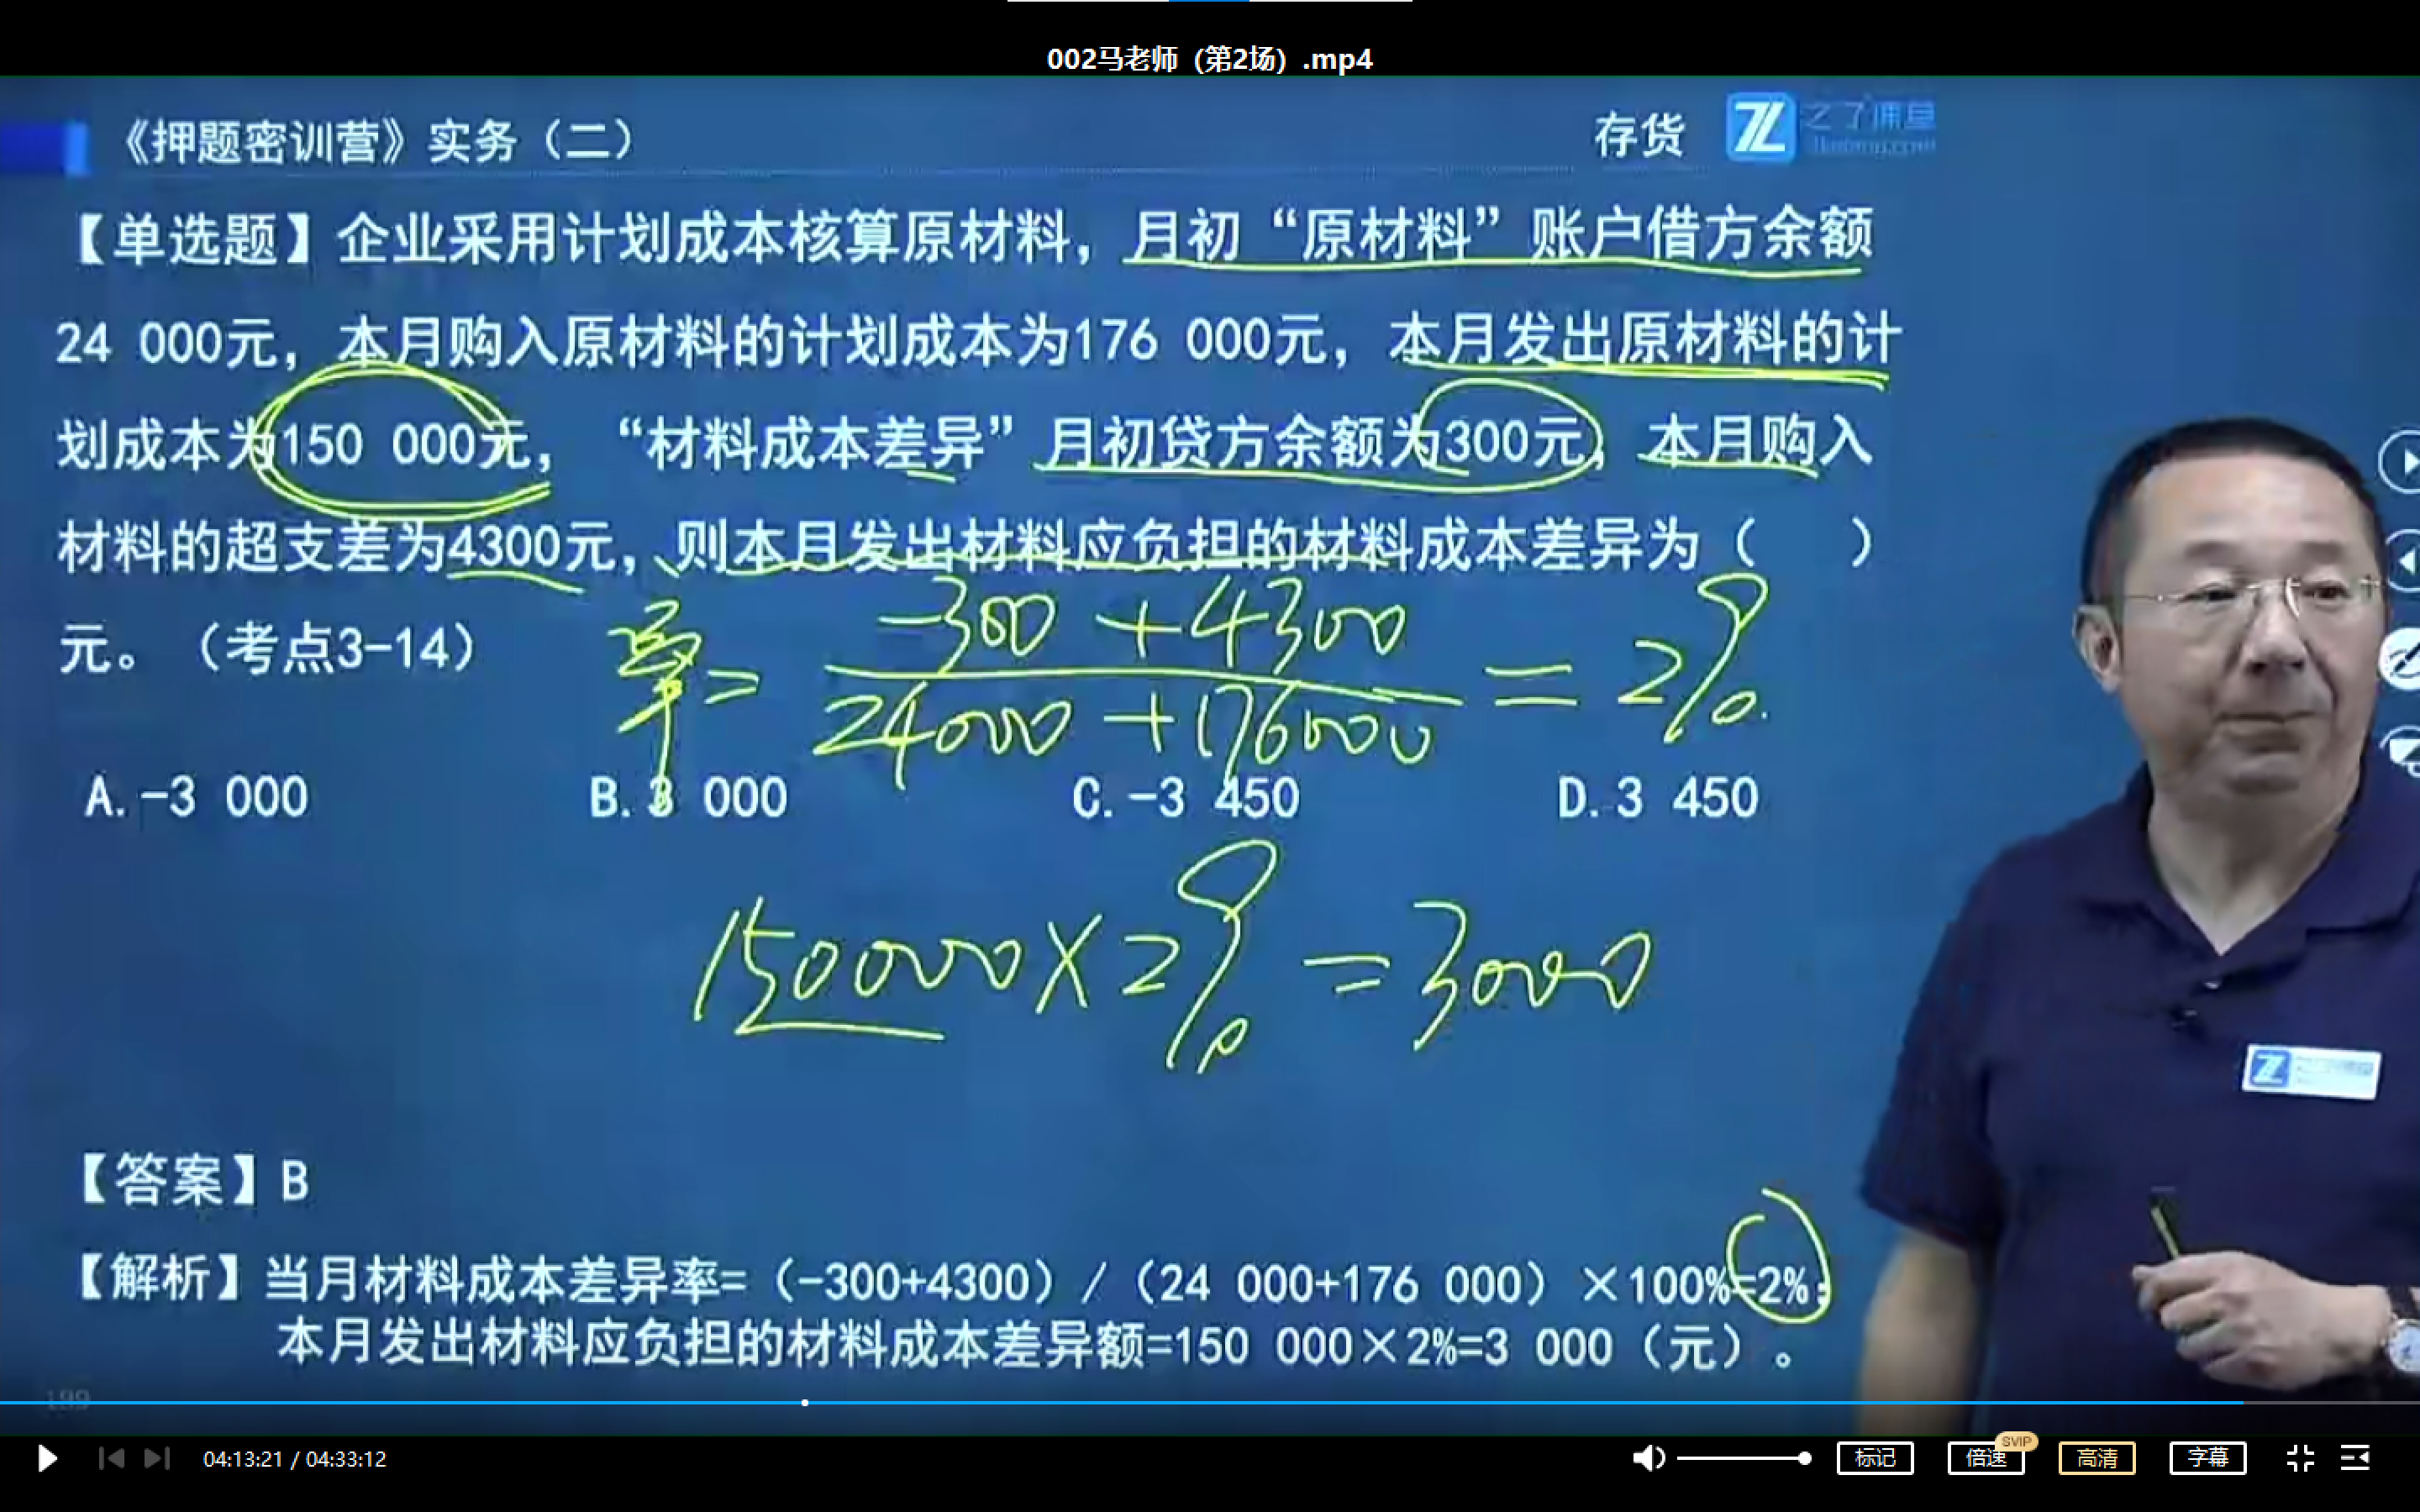 002马老师（第2场）.mp4
《押题密训营》实务（二）
存货
之了课堂
【单选题】企业采用计划成本核算原材料，月初“原材料”账户借方余额
24 000元，本月购入原材料的计划成本为176 000元，本月发出原材料的计
划成本为150 000元，“材料成本差异”月初贷方余额为300元，本月购入
材料的超支差为4300元，则本月发出材料应负担的材料成本差异为（ ）
元。（考点3-14）
率= -300 +4300
24000 +176000
= 2%
A.-3 000 B.3 000 C.-3 450 D.3 450
150000×2% =3000
【答案】B
【解析】当月材料成本差异率=（-300+4300）/（24 000+176 000）×100%=2%；
本月发出材料应负担的材料成本差异额=150 000×2%=3 000（元）。
199
04:13:21 / 04:33:12
标记
倍速
SVIP
高清
字幕